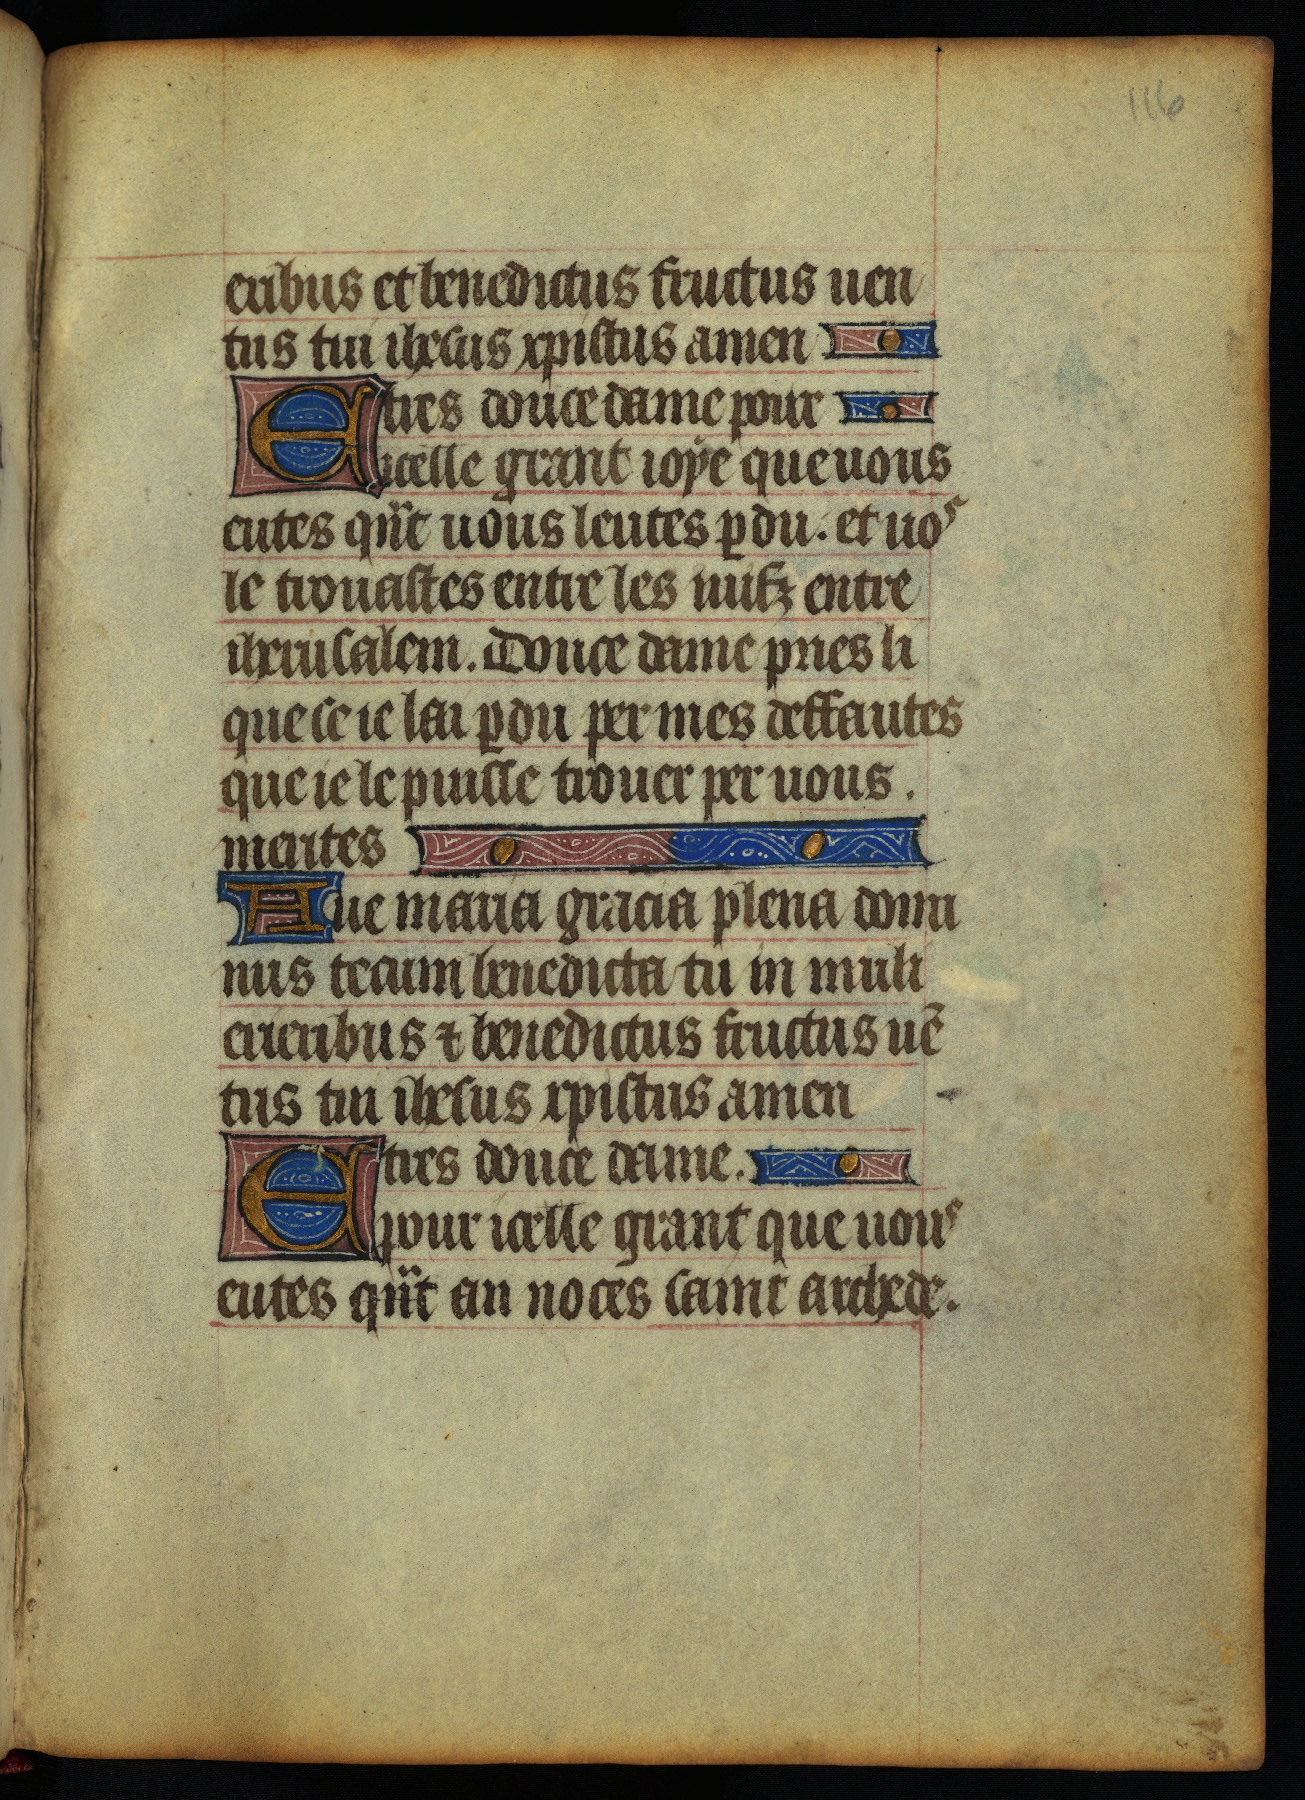 116
eribus et benedictus fructus uen
tus tui ihesus xpistus amen
E tres douce dame pour
icelle grant ioye que uous
eutes qn̄t uous leutes p̱du. et uoˢ
le trouastes entre les iuifz entre
iherusalem. Douce dame pries li
que se ie lai p̱du per mes deffautes
que ie le puisse trouer per uous.
merites
Aue maria gracia plena domi
nus tecum benedicta tu in muli
erieribus ⁊ benedictus fructus uē
tus tui ihesus xpistus amen
E tres douce dame.
pour icelle grant que uouˢ
eutes qn̄t an noces saint archede.